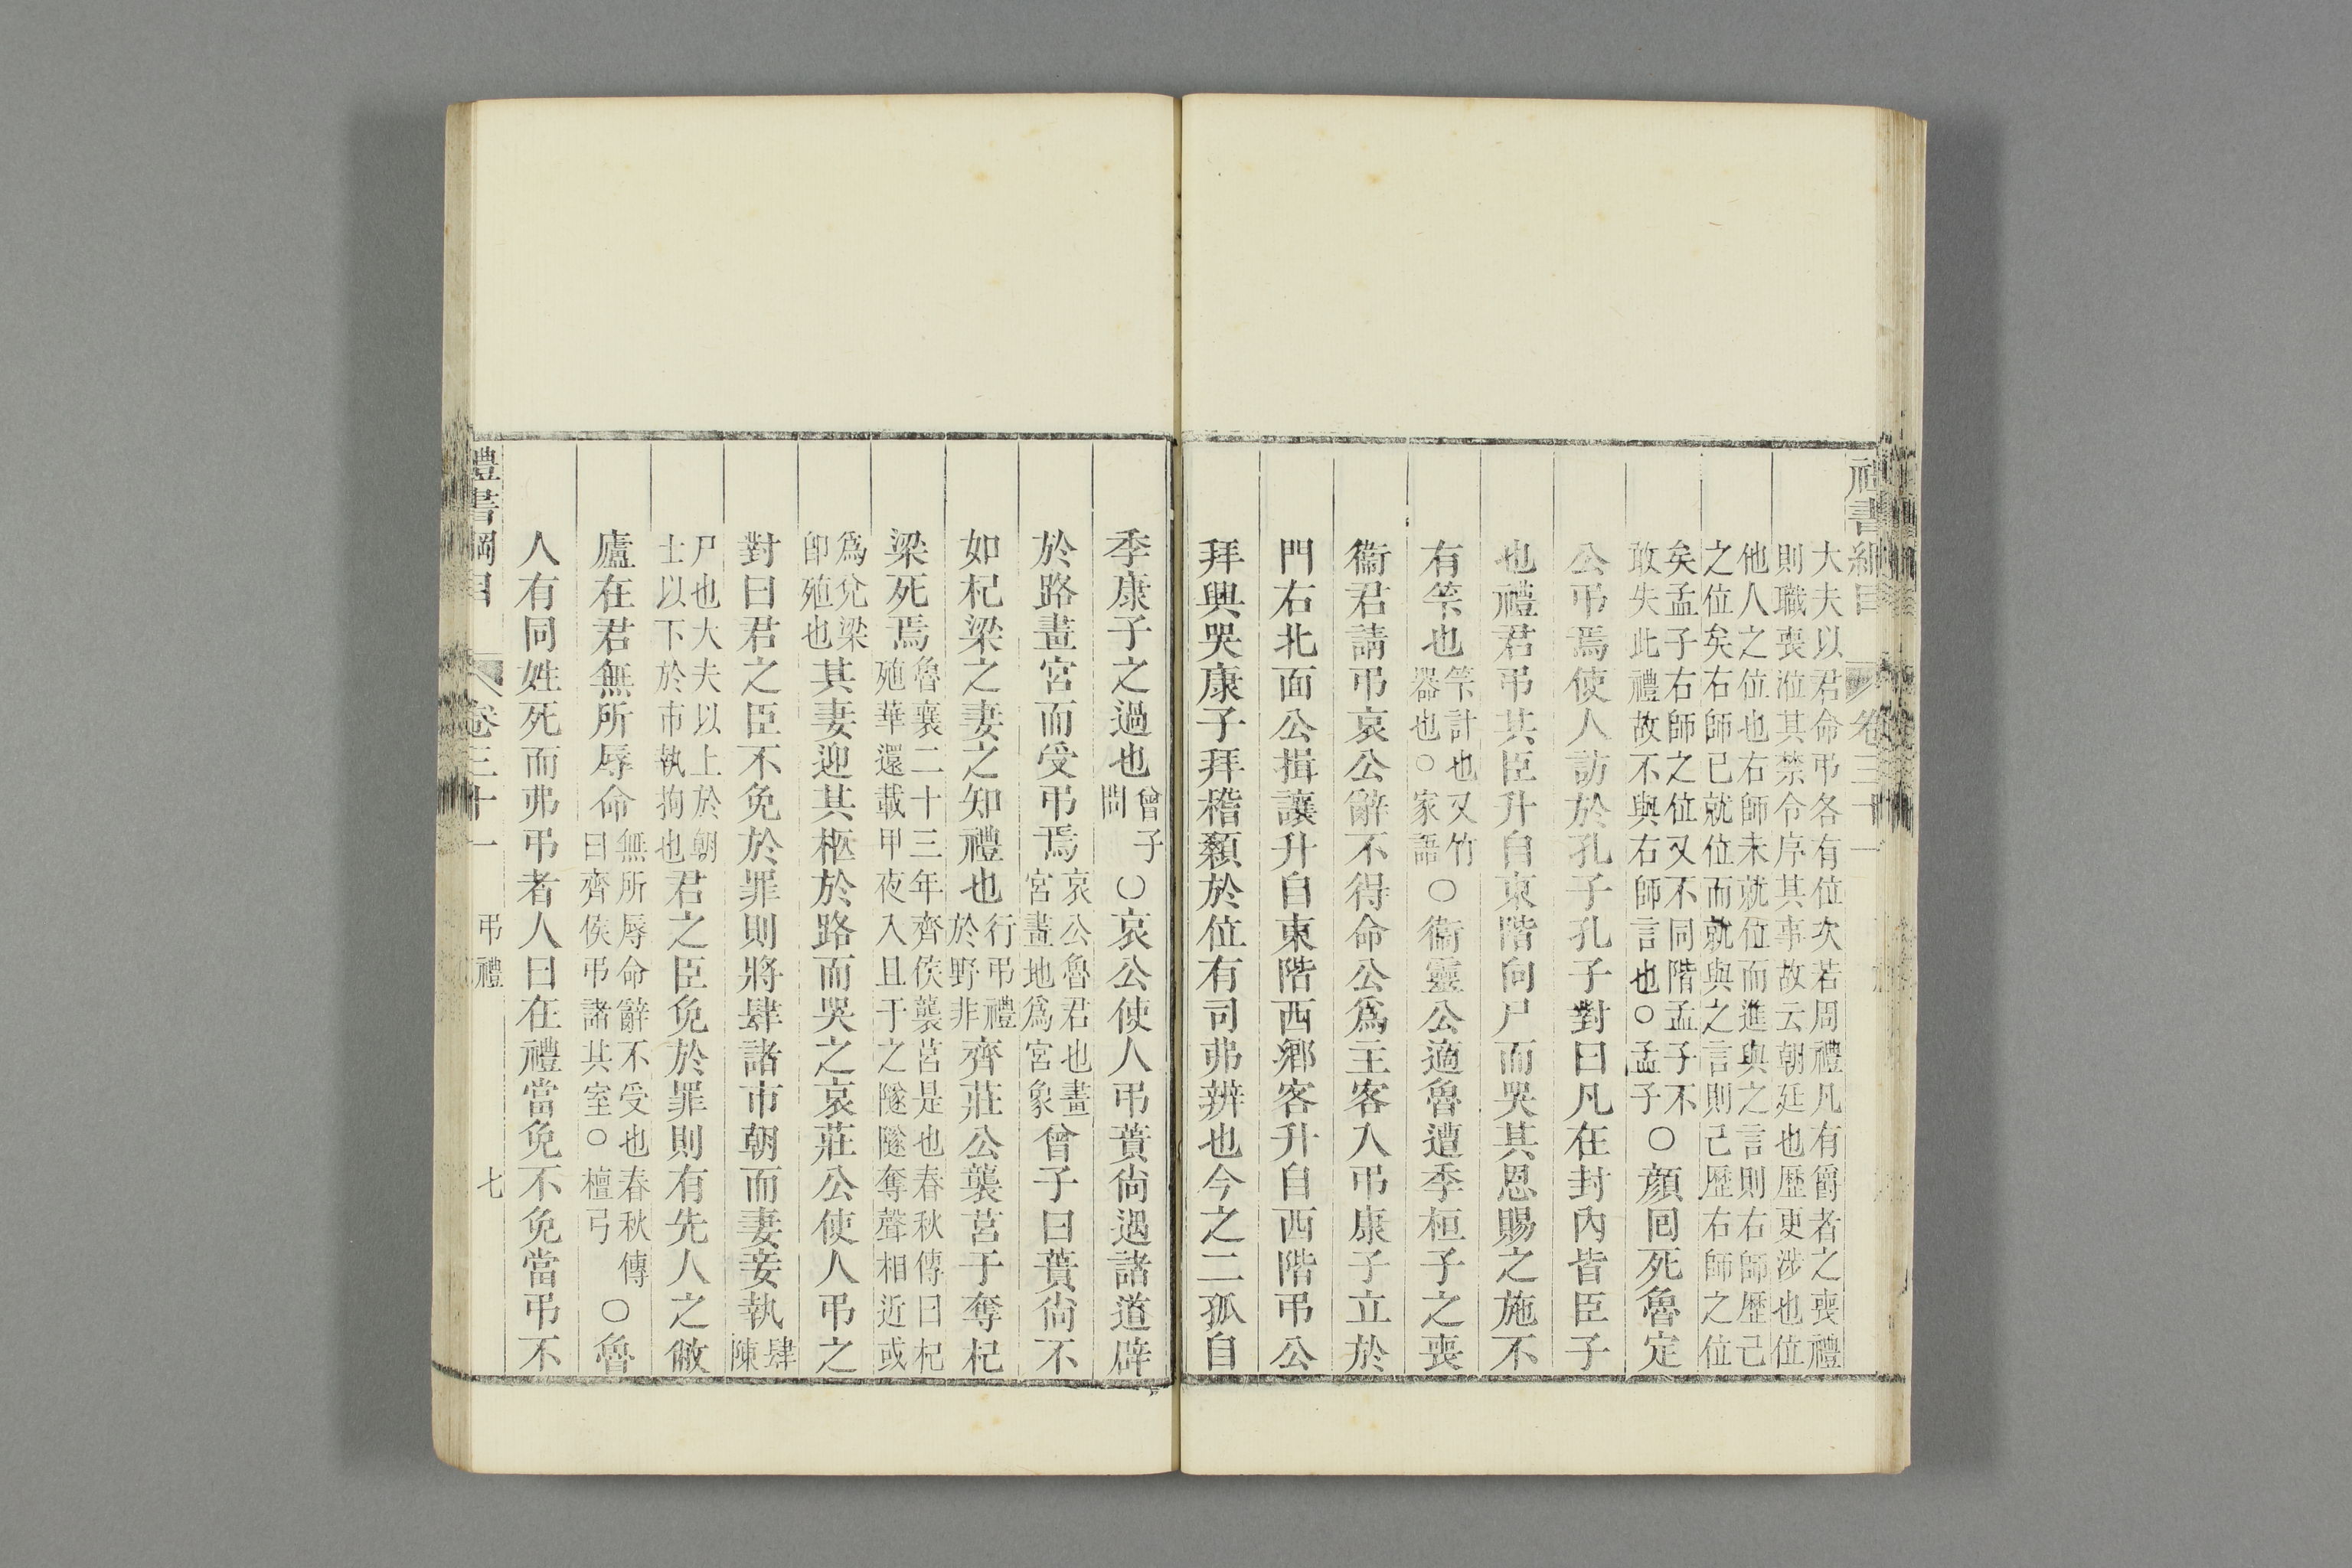 禮書綱目 卷三十一
大夫以君命弔各有位次若周禮凡有爵者之喪禮
則職喪涖其禁令序其事故云朝廷也歷更涉也位
他人之位也右師未就位而進與之言則右師歷己
之位矣右師已就位而就與之言則己歷右師之位
矣孟子右師之位又不同階孟子不
敢失此禮故不與右師言也○孟子
○顔回死魯定
公弔焉使人訪於孔子孔子對曰凡在封內皆臣子
也禮君弔其臣升自東階向尸而哭其恩賜之施不
有筭也
筭計也又竹
器也○家語
○衞靈公適魯遭季桓子之喪
衞君請弔哀公辭不得命公爲主客入弔康子立於
門右北面公揖讓升自東階西鄉客升自西階弔公
拜興哭康子拜稽顙於位有司弗辨也今之二孤自
季康子之過也
曾子
問
○哀公使人弔蕢尙遇諸道辟
於路畫宮而受弔焉
哀公魯君也畫
宮畫地爲宮象
曾子曰蕢尙不
如杞梁之妻之知禮也
行弔禮
於野非
齊莊公襲莒于奪杞
梁死焉
魯襄二十三年齊侯襲莒是也春秋傳曰杞
殖華還載甲夜入且于之隧隧奪聲相近或
爲兌梁
卽殖也
其妻迎其柩於路而哭之哀莊公使人弔之
對曰君之臣不免於罪則將肆諸市朝而妻妾執
肆
陳
尸也大夫以上於朝
士以下於市執拘也
君之臣免於罪則有先人之敝
廬在君無所辱命
無所辱命辭不受也春秋傳
曰齊侯弔諸其室○檀弓
○魯
人有同姓死而弗弔者人曰在禮當免不免當弔不
禮書綱目 卷三十一 弔禮 七